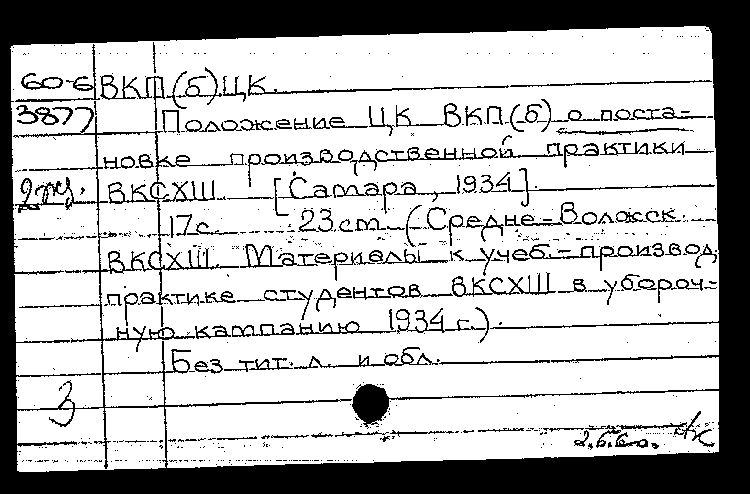 60-6 ВКП(б) ЦК.
3877 Положение ЦК ВКП(б) о поста-
новке производственной практики
2 экз. ВКСХШ [Самара, 1934].
17 с. 23 cm (Средне-Волжск.
ВКСХШ. Материалы к учеб.-производ.
практике студентов ВКСХШ в убороч-
ную кампанию 1934 г.).
Без тит. л. и обл.
3